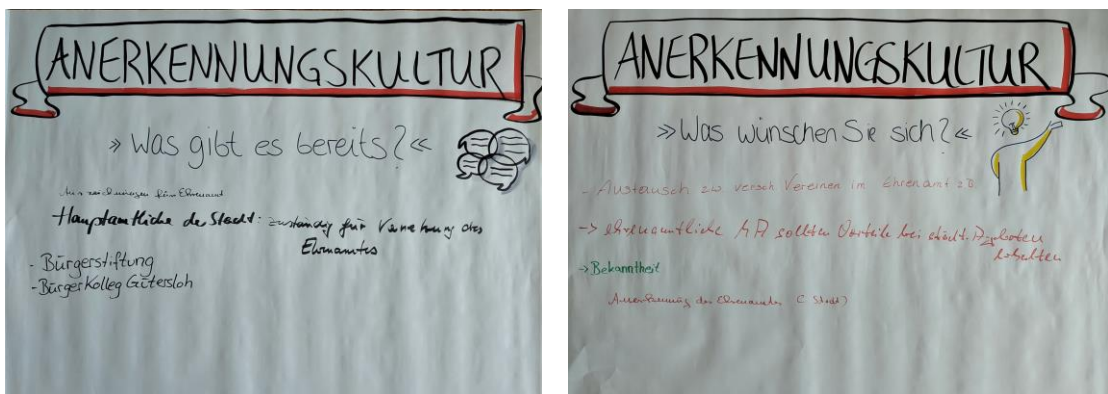 ANERKENNUNGSKULTUR
» Was gibt es bereits? «
für Ehrenamt
Hauptamtliche der Stadt: zuständig für Vernetzung des
Ehrenamtes
- Bürgerstiftung
- BürgerKolleg Gütersloh
ANERKENNUNGSKULTUR
» Was wünschen Sie sich? «
- Austausch zw versch Vereinen im Ehrenamt
-> ehrenamtliche MA sollten Vorteile bei städt.
erhalten
-> Bekanntheit
Anerkennung des Ehrenamtes Stadt)